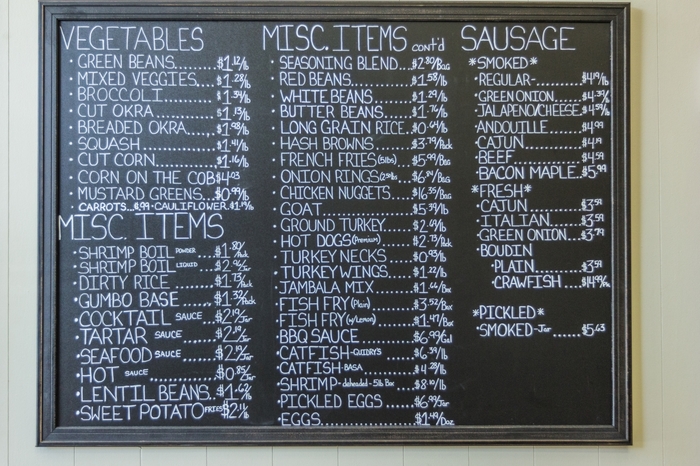 VEGETABLES
· GREEN BEANS.......$1.12/lb
· MIXED VEGGIES...$1.28/lb
· BROCCOLI..........$1.34/lb
· CUT OKRA..........$1.13/lb
· BREADED OKRA...$1.98/lb
· SQUASH.............$1.41/lb
· CUT CORN..........$1.16/lb
· CORN ON THE COB $4.03
· MUSTARD GREENS..$0.99/lb
· CARROTS..$.99 · CAULIFLOWER
MISC. ITEMS
· SHRIMP BOIL POWDER
· SHRIMP BOIL LIQUID
· DIRTY RICE
· GUMBO BASE
· COCKTAIL SAUCE
· TARTAR SAUCE
· SEAFOOD SAUCE
· HOT SAUCE
· LENTIL BEANS..$1.62/lb
· SWEET POTATO FRIES
MISC. ITEMS cont'd
· SEASONING BLEND...$2.80/Bag
· RED BEANS..........$1.58/lb
· WHITE BEANS.......$1.29/lb
· BUTTER BEANS......$1.76/lb
· LONG GRAIN RICE..$0.64/lb
· HASH BROWNS
· FRENCH FRIES (5lbs)...$5.99/Bag
· ONION RINGS
· CHICKEN NUGGETS
· GOAT................$5.39/lb
· GROUND TURKEY
· HOT DOGS (Premium)
· TURKEY NECKS.....$0.93/lb
· TURKEY WINGS.....$1.22/lb
· JAMBALA MIX
· FISH FRY (Plain)
· FISH FRY (w/Lemon)
· BBQ SAUCE........$6.99/Gal
· CATFISH-QUIDRY'S......$6.39/lb
· CATFISH-BASA
· SHRIMP-deheaded-5lb Box...$8.10/lb
· PICKLED EGGS.....$6.99/Jar
· EGGS....................$1.49/Doz
SAUSAGE
*SMOKED*
· REGULAR-........$4.19/lb
· GREEN ONION...$4.39/lb
· JALAPENO/CHEESE..$4.59/lb
· ANDOUILLE......$4.99
· CAJUN............$4.19
· BEEF..............$4.59
· BACON MAPLE..$5.99
*FRESH*
· CAJUN.........$3.59
· ITALIAN.......$3.59
· GREEN ONION...$3.79
· BOUDIN
· PLAIN.........$3.59
· CRAWFISH
*PICKLED*
· SMOKED-Jar......$5.63